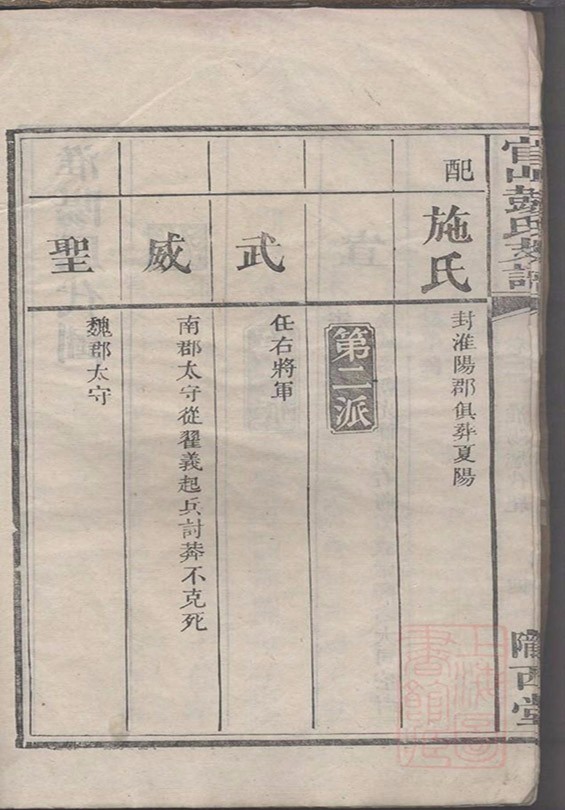 宜山彭氏族譜
隴西堂
配
施氏
封淮陽郡俱葬夏陽
第二派
武
任右將軍
威
南郡太守從翟義起兵討莽不克死
聖
魏郡太守
上海圖書館藏